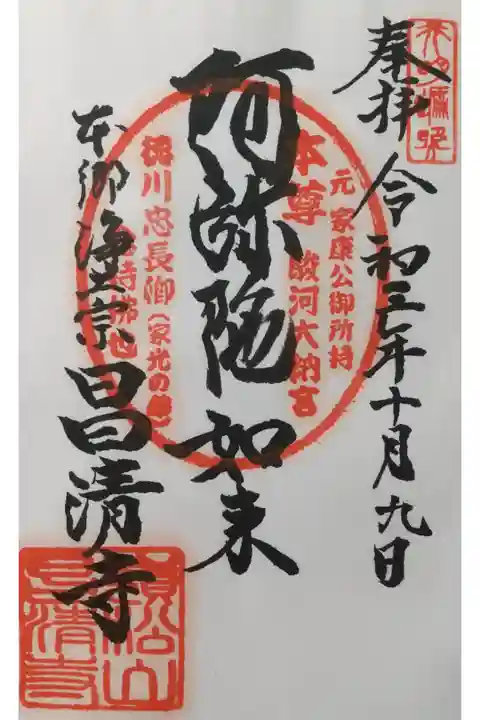 奉拝
令和三年十月九日
阿弥陀如来
元家康公御所持
本尊 駿河大納言
徳川忠長卿(家光の弟)
持佛也
本郷 浄土宗 昌清寺
昌清寺